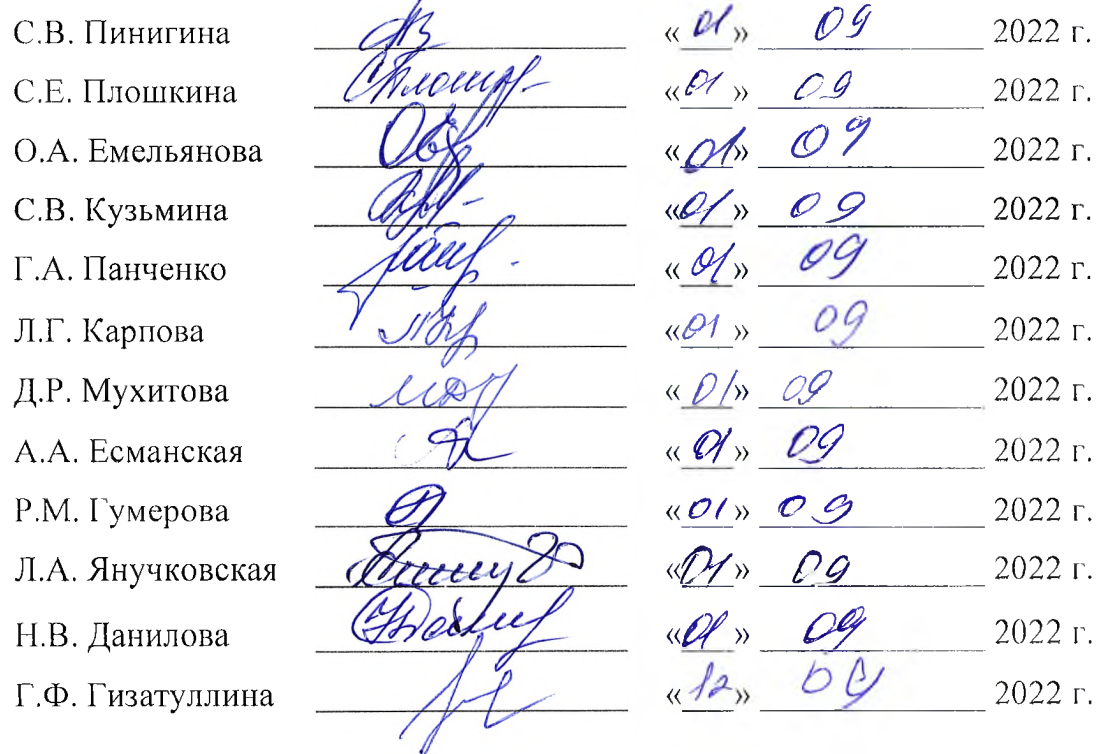 С.В. Пинигина «01» 09 2022 г.
С.Е. Плошкина «01» 09 2022 г.
О.А. Емельянова «01» 09 2022 г.
С.В. Кузьмина «01» 09 2022 г.
Г.А. Панченко «01» 09 2022 г.
Л.Г. Карпова «01» 09 2022 г.
Д.Р. Мухитова «01» 09 2022 г.
А.А. Есманская «01» 09 2022 г.
Р.М. Гумерова «01» 09 2022 г.
Л.А. Янучковская «01» 09 2022 г.
Н.В. Данилова «01» 09 2022 г.
Г.Ф. Гизатуллина «12» 09 2022 г.